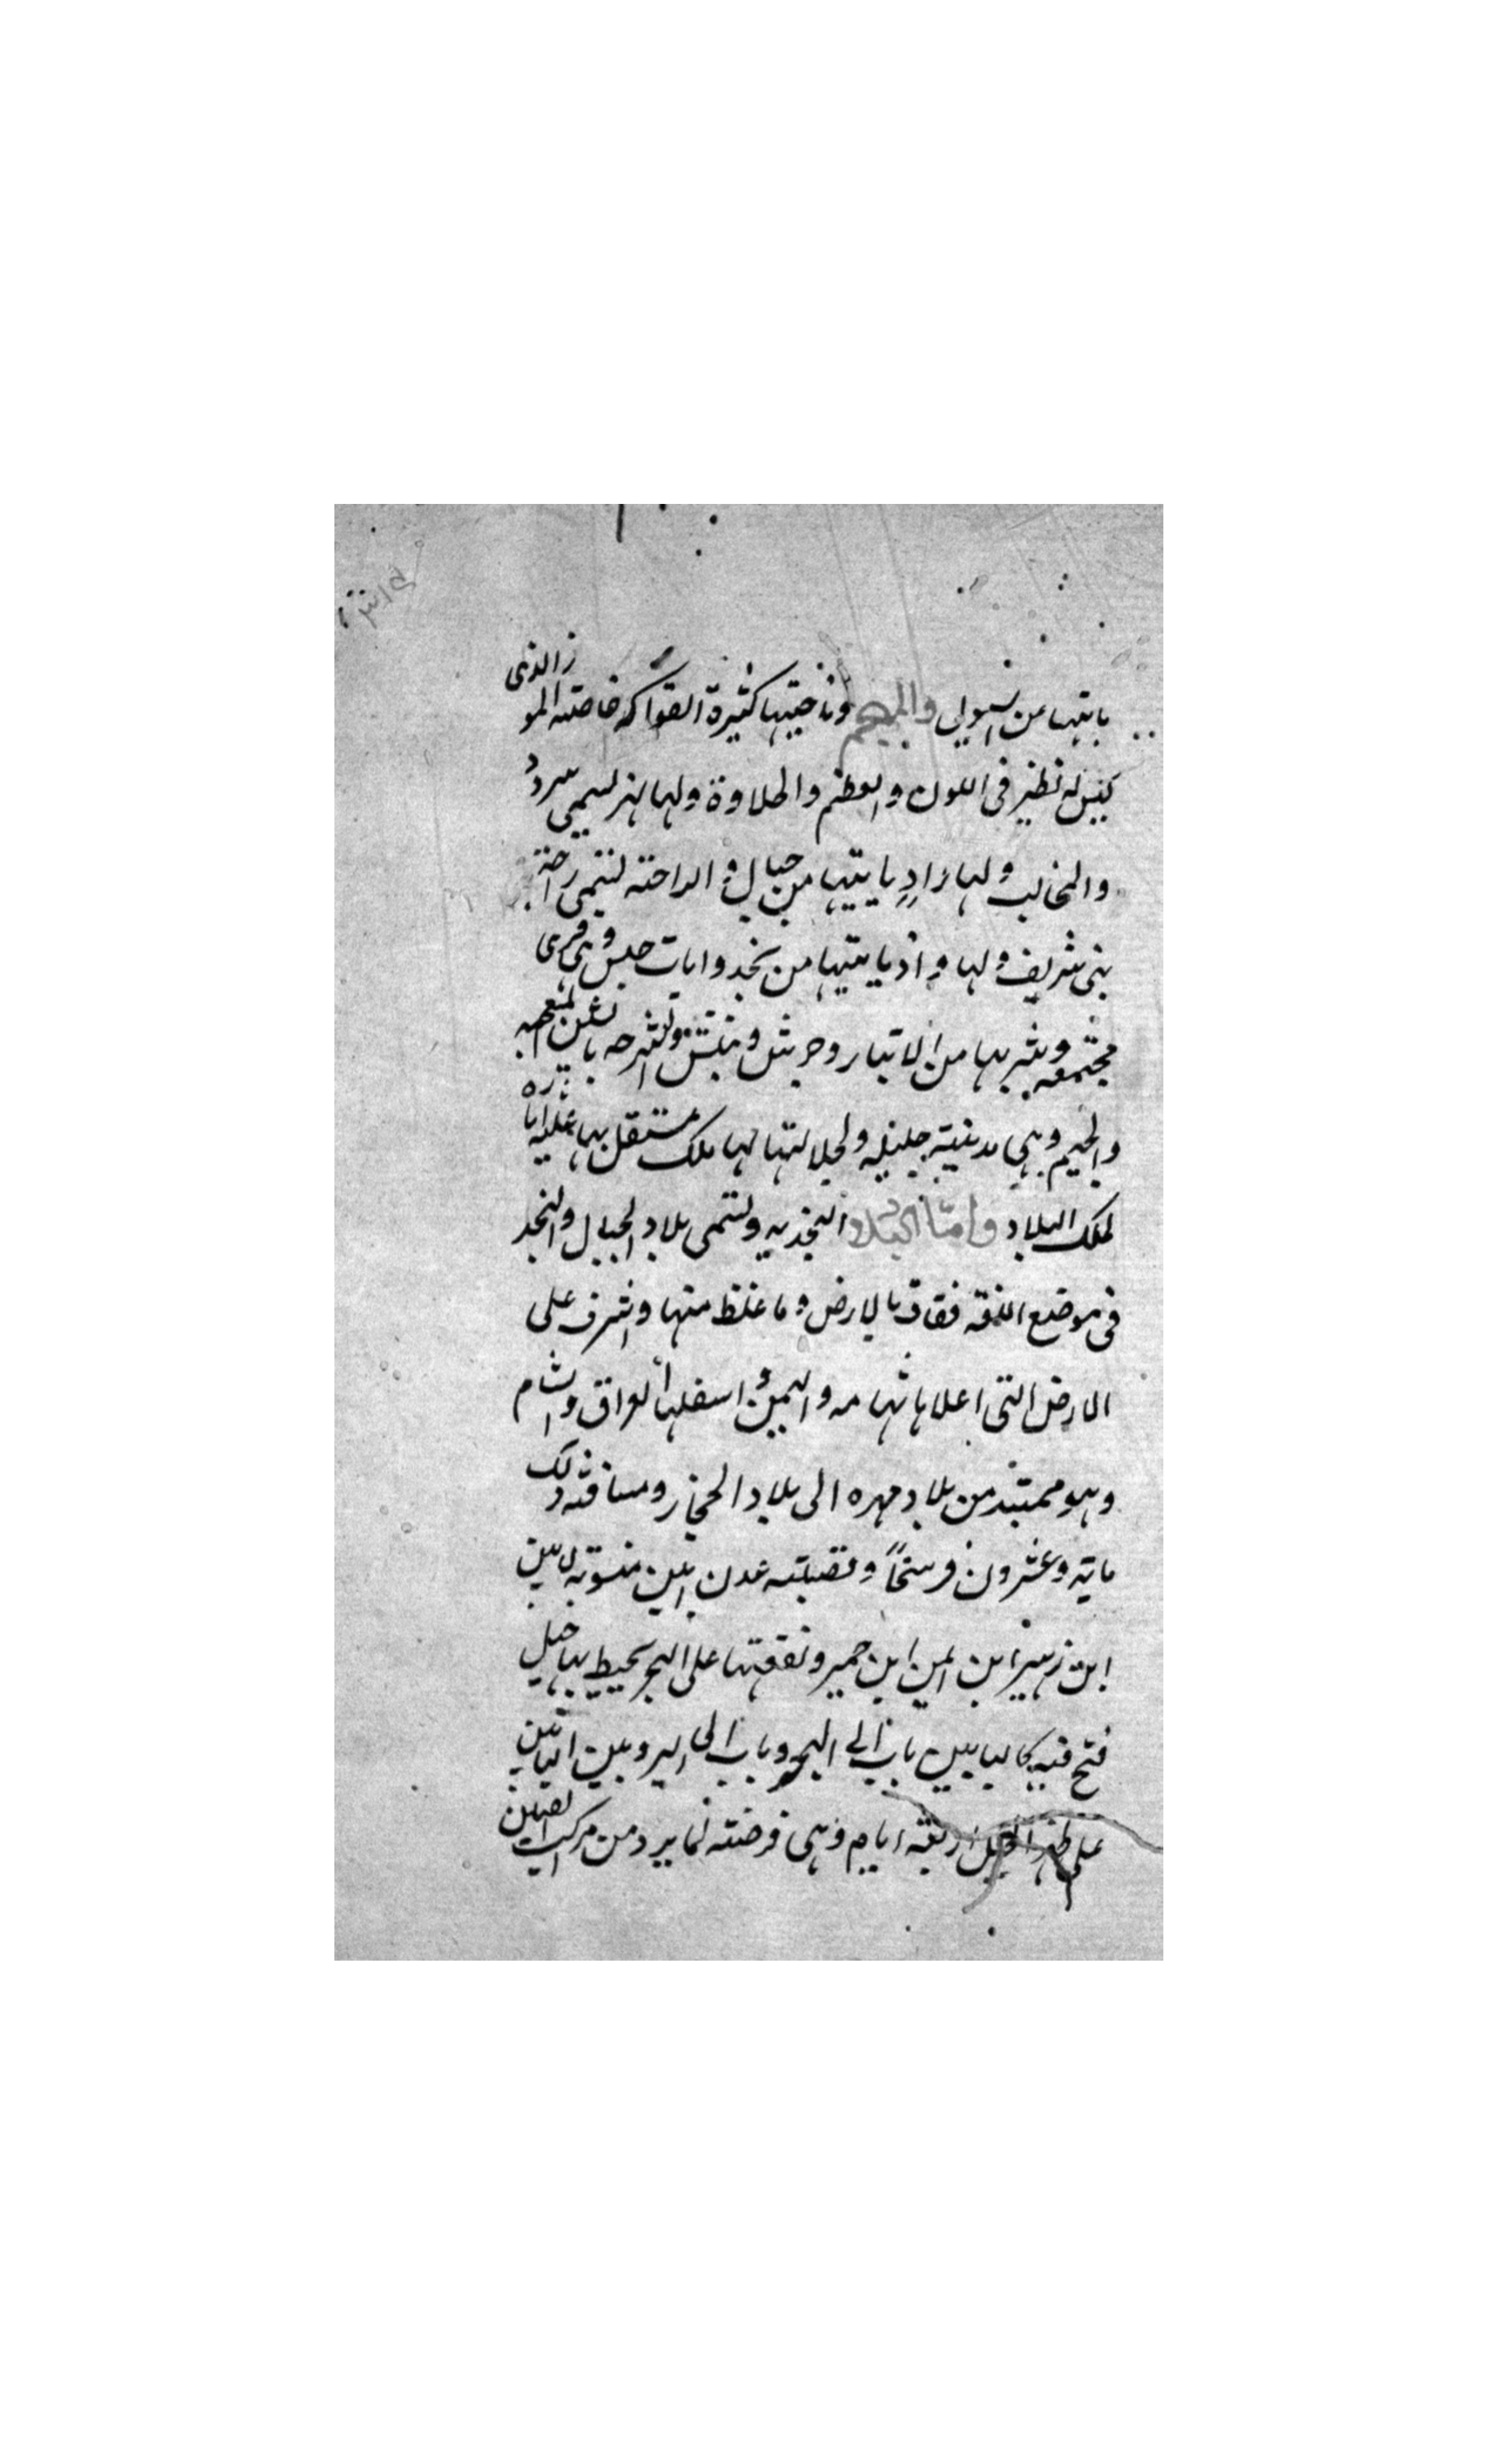 ياتيها من السيول والمهجم وناحيتها كثيرة الفواكه خاصة الموز الذي
ليس له نظير في اللون والعظم والحلاوة ولها نهر يسمى سردد
والمخالب ولها واد ياتيها من جبال والراحة لتسمى راحة
بني شريف ولها واد ياتيها من نجد وابات حلس وهي قرى
مجتمعه وشربها من الابيار وحريش
والحيم وهي مدينة جليله ولجلالتها لها ملك مستقل بها
لملك البلاد واما البلاد النجديه وتسمى بلاد الجبال والنجد
في موضع اللغه فقاف بالارض وما غلظ منها واشرف على
الارض التي اعلاها تهامه واليمن واسفلها العراق والشام
وهو ممتد من بلاد مهره الى بلاد الحجاز ومسافة ذلك
ماية وعشرون فرسخاً وقصبته عدن ابين منسوبة لابين
ابن زهير ابن ايمن ابن حمير ونقعتها على البحر يحيط بها جبل
فتح فيه كالبابين باب الى البحر وباب الى البر وبين البابين
على ظهر الجبل اربعة ايام وهي فرضة لما يرد من مراكب الصين